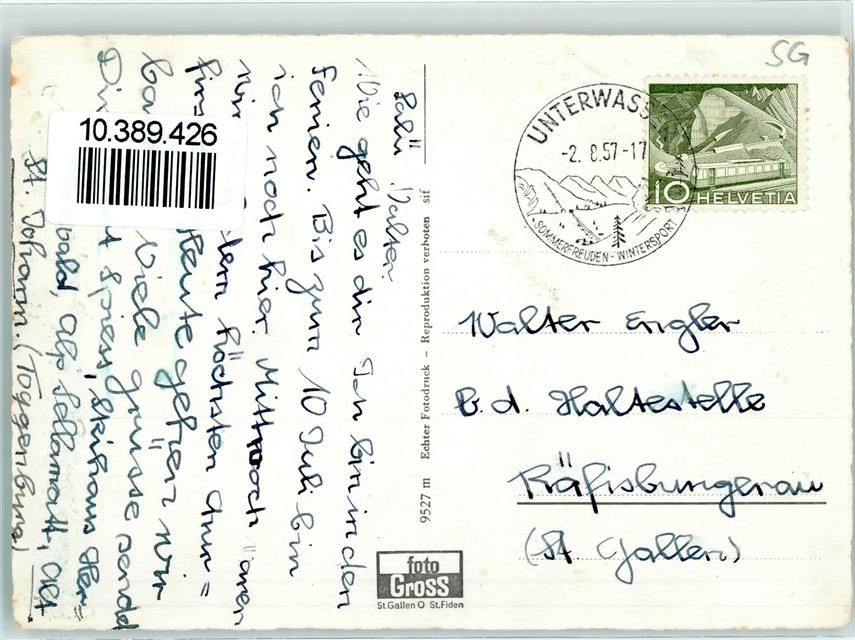 SG
UNTERWASS
-2. 8.57-17
SOMMERFREUDEN - WINTERSPORT
10 HELVETIA
10.389.426
Salü Walter
Wie geht es dir Ich bin in den
Ferien. Bis zum 10 Juli bin
ich noch hier. Mittwoch waren
wir höchsten Chur=
firs Heute gehen wir
ba Viele Grüsse sendet
Dir Spiess, Skihaus Her=
wald, Alp Sellamatt, Alt
St. Johann. (Toggenburg)
9527 m Echter Fotodruck – Reproduktion verboten sif
foto
Gross
St.Gallen O St.Fiden
Walter Engler
b. d. Haltestelle
Räfisburgerau
(St. Gallen)